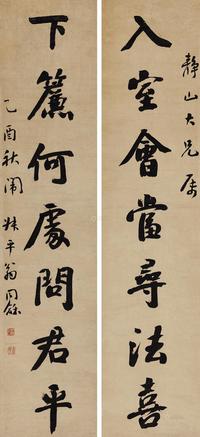 靜山大兄屬
入室會當尋法喜
下簾何處問君平
乙酉秋闈 叔平翁同龢